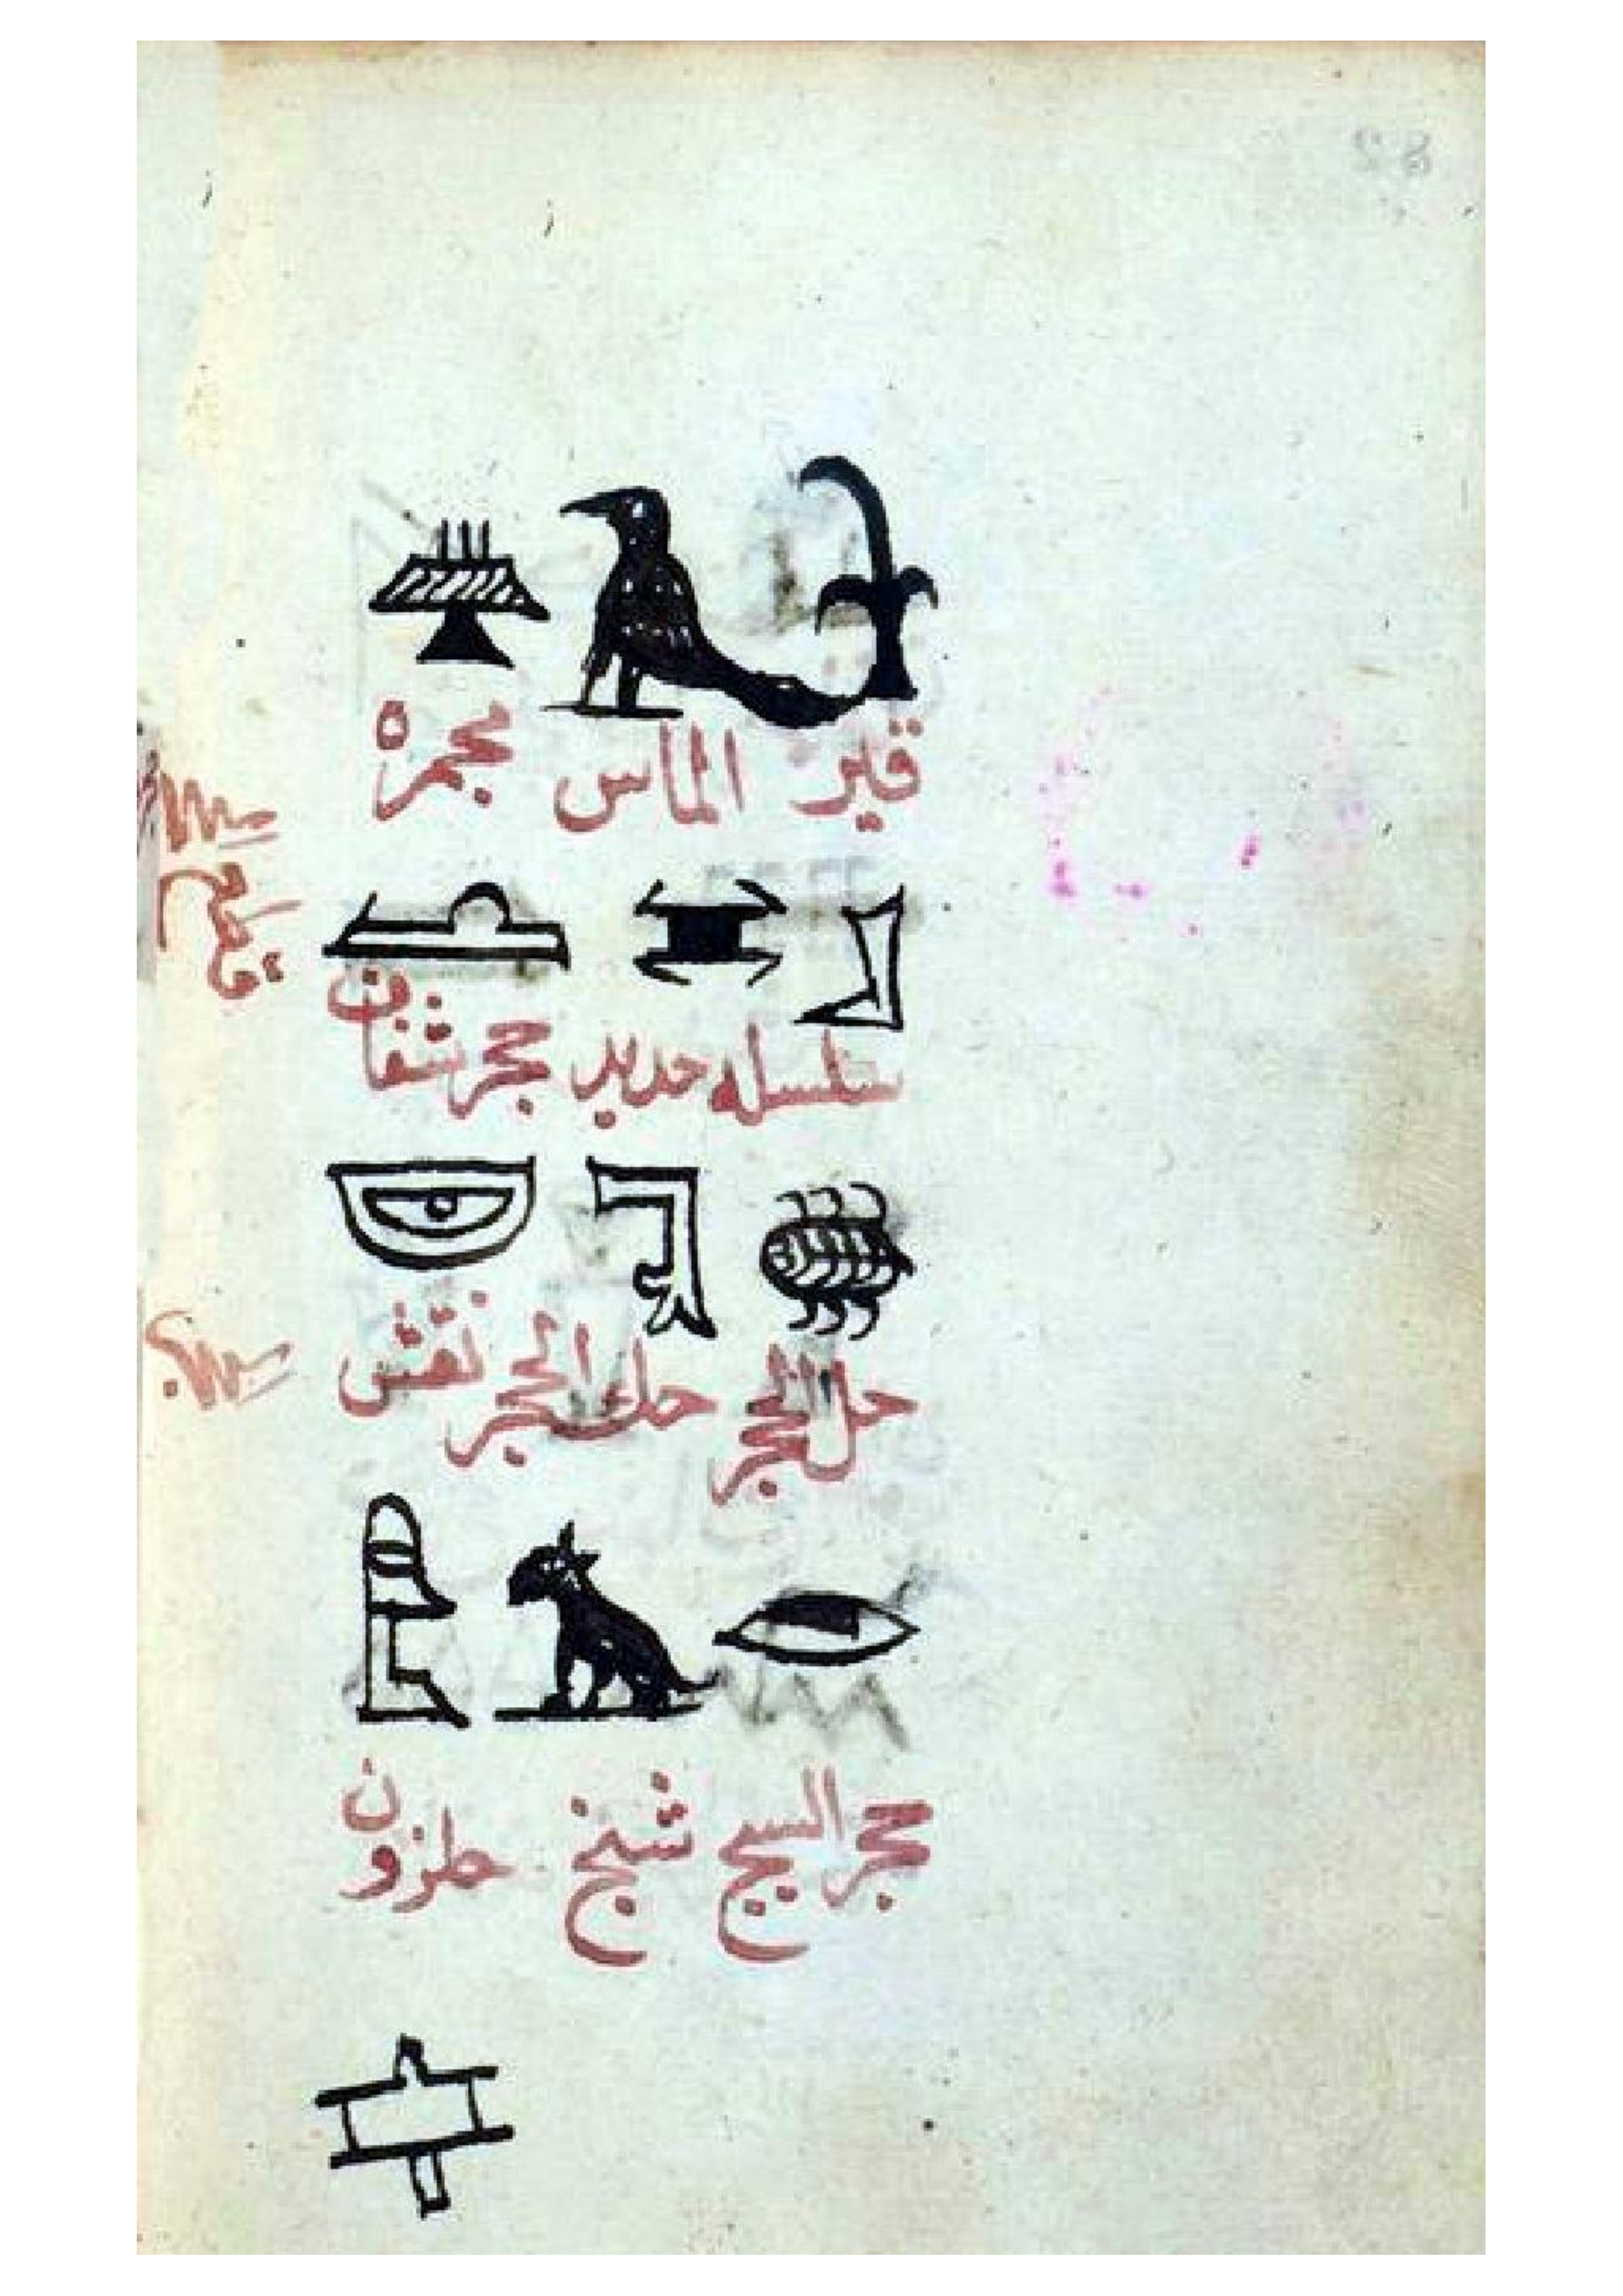 قير الماس مجمره
سلسله حديد حجر شفاف
حل الحجر حك الحجر نقش
حجر السبج شنج حلزون